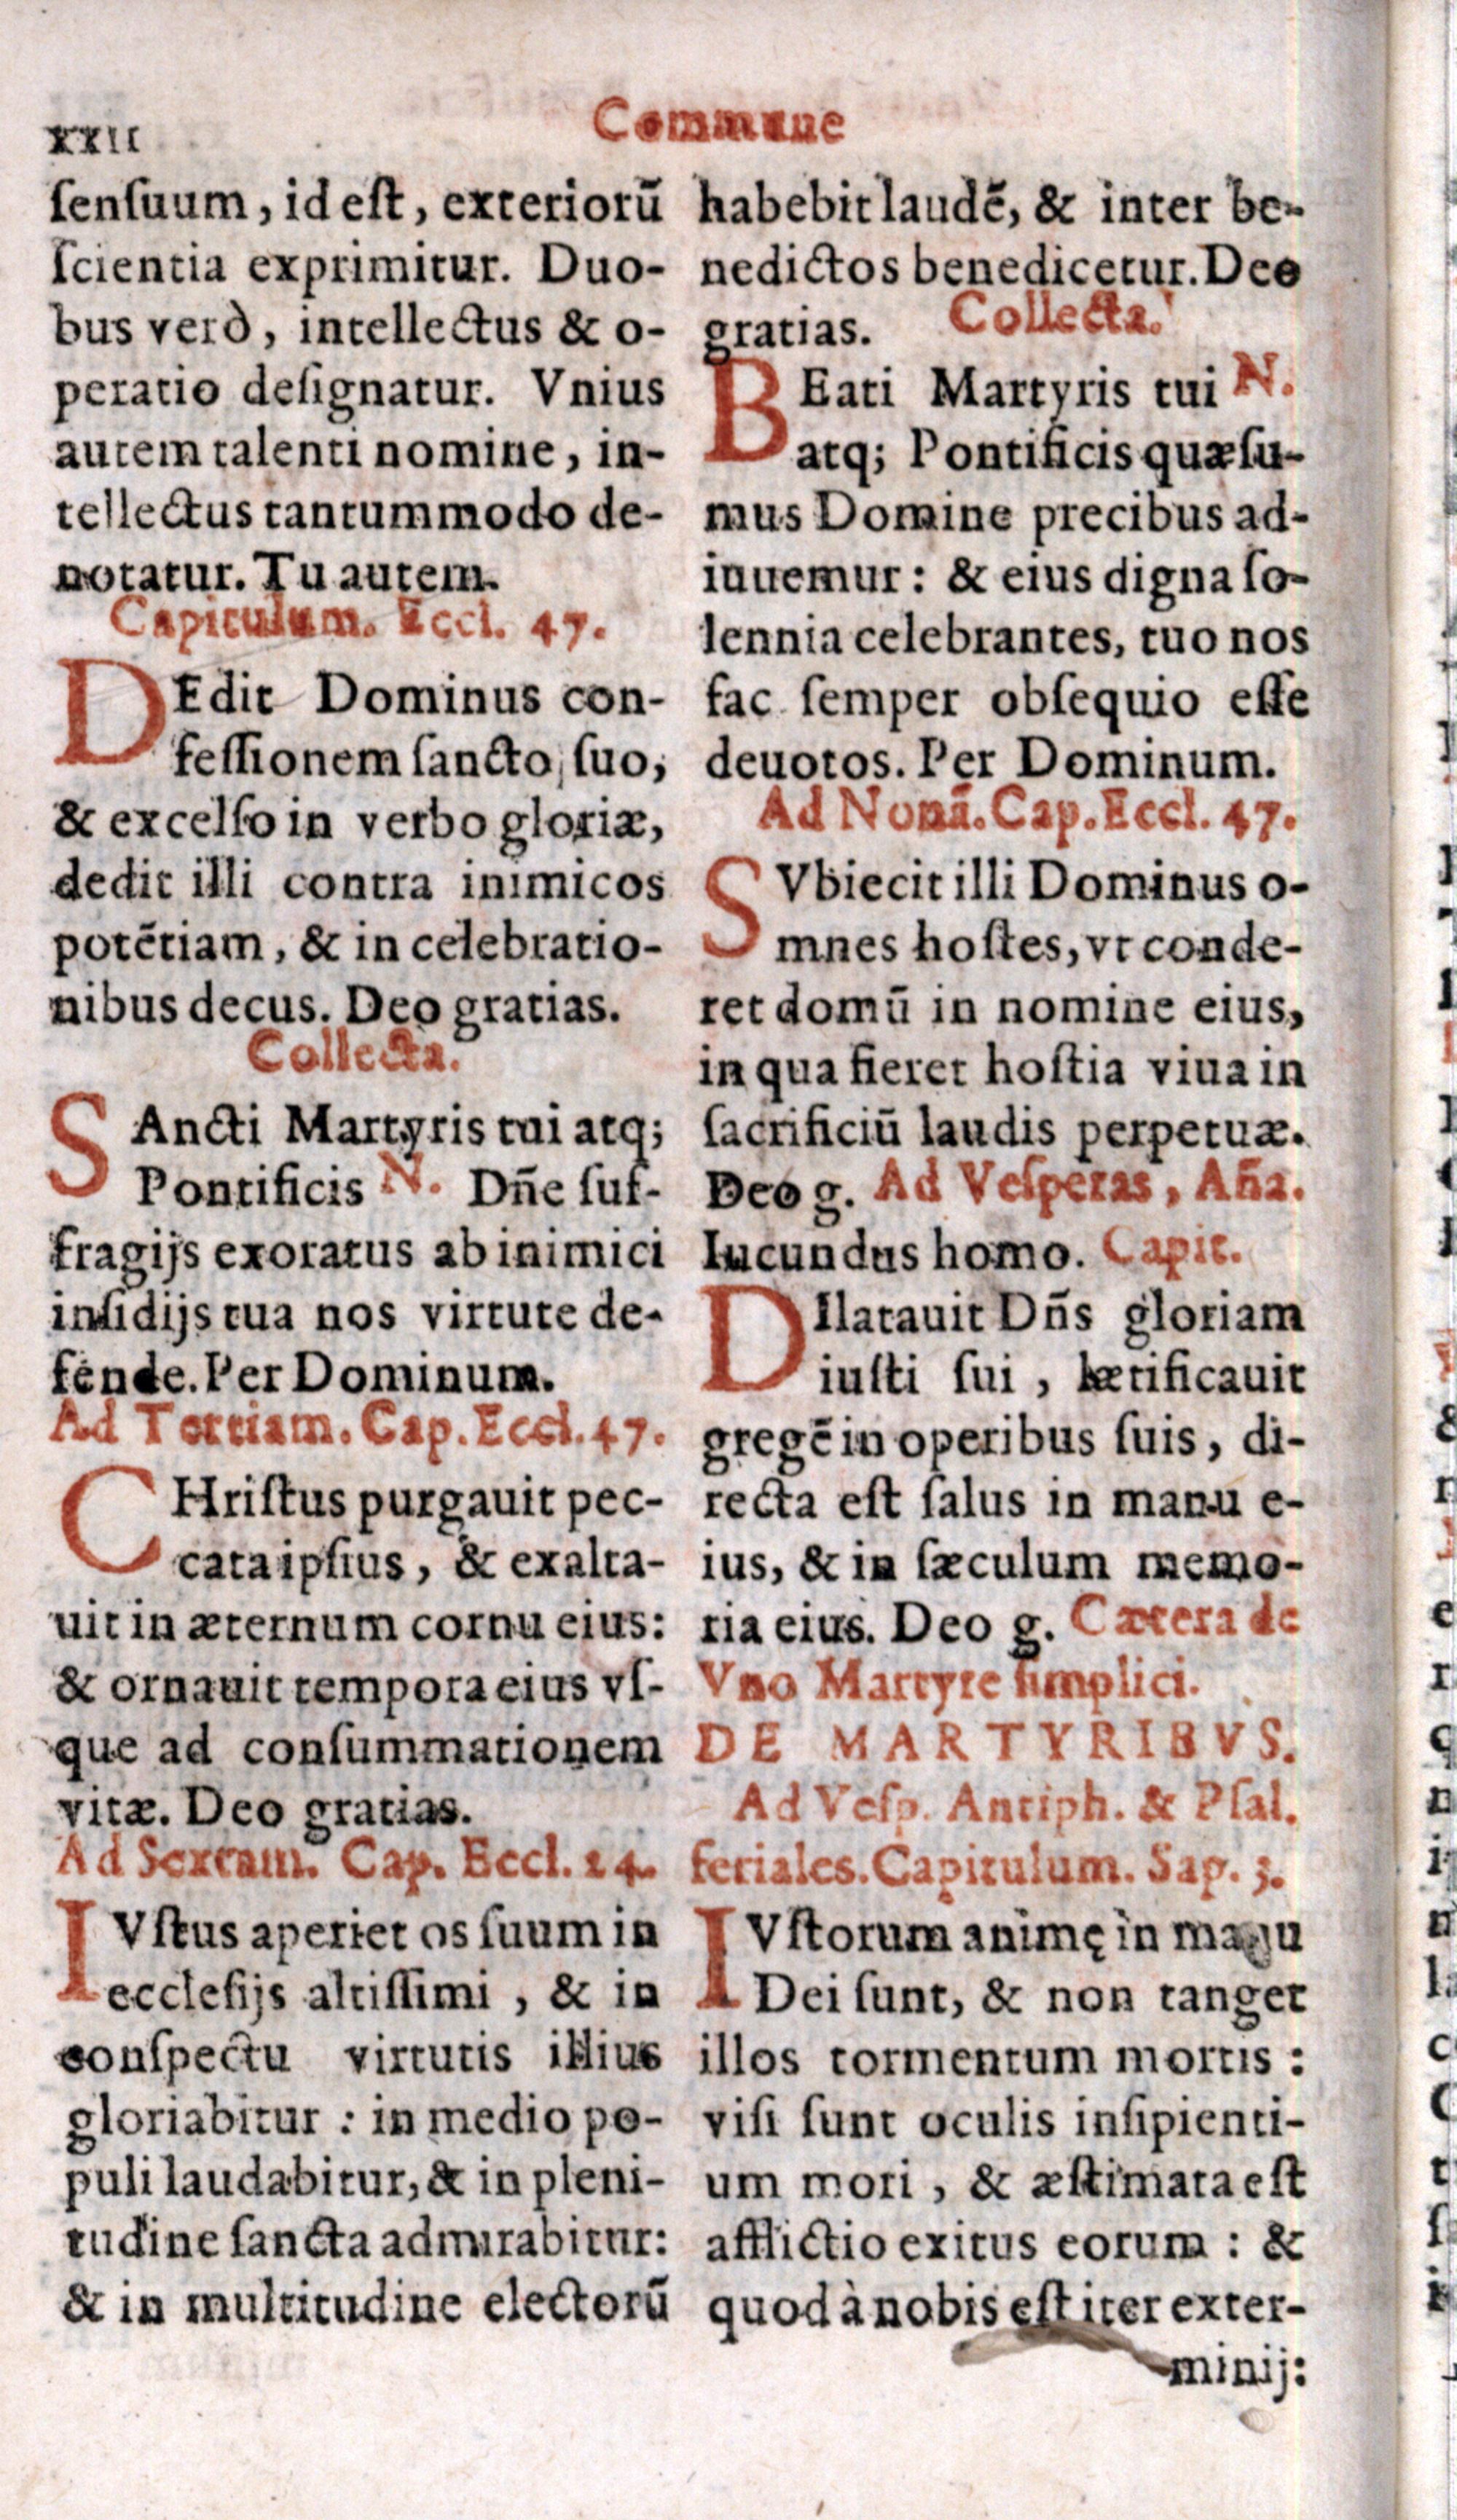 xxii
Commune
ſenſuum, id eſt, exteriorū
ſcientia exprimitur. Duo-
bus verò, intellectus & o-
peratio deſignatur. Vnius
autem talenti nomine, in-
tellectus tantummodo de-
notatur. Tu autem.
Capitulum. Eccl. 47.
DEdit Dominus con-
feſſionem ſancto ſuo,
& excelſo in verbo gloriæ,
dedit illi contra inimicos
potētiam, & in celebratio-
nibus decus. Deo gratias.
Collecta.
SAncti Martyris tui atq;
Pontificis N. Dñe ſuf-
fragijs exoratus ab inimici
inſidijs tua nos virtute de-
fende. Per Dominum.
Ad Tertiam. Cap. Eccl. 47.
CHriſtus purgauit pec-
cata ipſius, & exalta-
uit in æternum cornu eius:
& ornauit tempora eius vſ-
que ad conſummationem
vitæ. Deo gratias.
Ad Sextam. Cap. Eccl. 24.
IVſtus aperiet os ſuum in
eccleſijs altiſſimi, & in
conſpectu virtutis illius
gloriabitur : in medio po-
puli laudabitur, & in pleni-
tudine ſancta admirabitur:
& in multitudine electorū
habebit laudē, & inter be-
nedictos benedicetur. Deo
gratias. Collecta.
BEati Martyris tui N.
atq; Pontificis quæſu-
mus Domine precibus ad-
iuuemur: & eius digna ſo-
lennia celebrantes, tuo nos
fac ſemper obſequio eſſe
deuotos. Per Dominum.
Ad Nonā. Cap. Eccl. 47.
SVbiecit illi Dominus o-
mnes hoſtes, vt conde-
ret domū in nomine eius,
in qua fieret hoſtia viua in
ſacrificiū laudis perpetuæ.
Deo g. Ad Veſperas, Aña.
Iucundus homo. Capit.
DIlatauit Dñs gloriam
iuſti ſui, lætificauit
gregē in operibus ſuis, di-
recta eſt ſalus in manu e-
ius, & in ſæculum memo-
ria eius. Deo g. Cætera de
Vno Martyre ſimplici.
DE MARTYRIBVS.
Ad Veſp. Antiph. & Pſal.
feriales. Capitulum. Sap. 3.
IVſtorum animę in manu
Dei ſunt, & non tanget
illos tormentum mortis :
viſi ſunt oculis inſipienti-
um mori, & æſtimata eſt
afflictio exitus eorum : &
quod à nobis eſt iter exter-
minij: